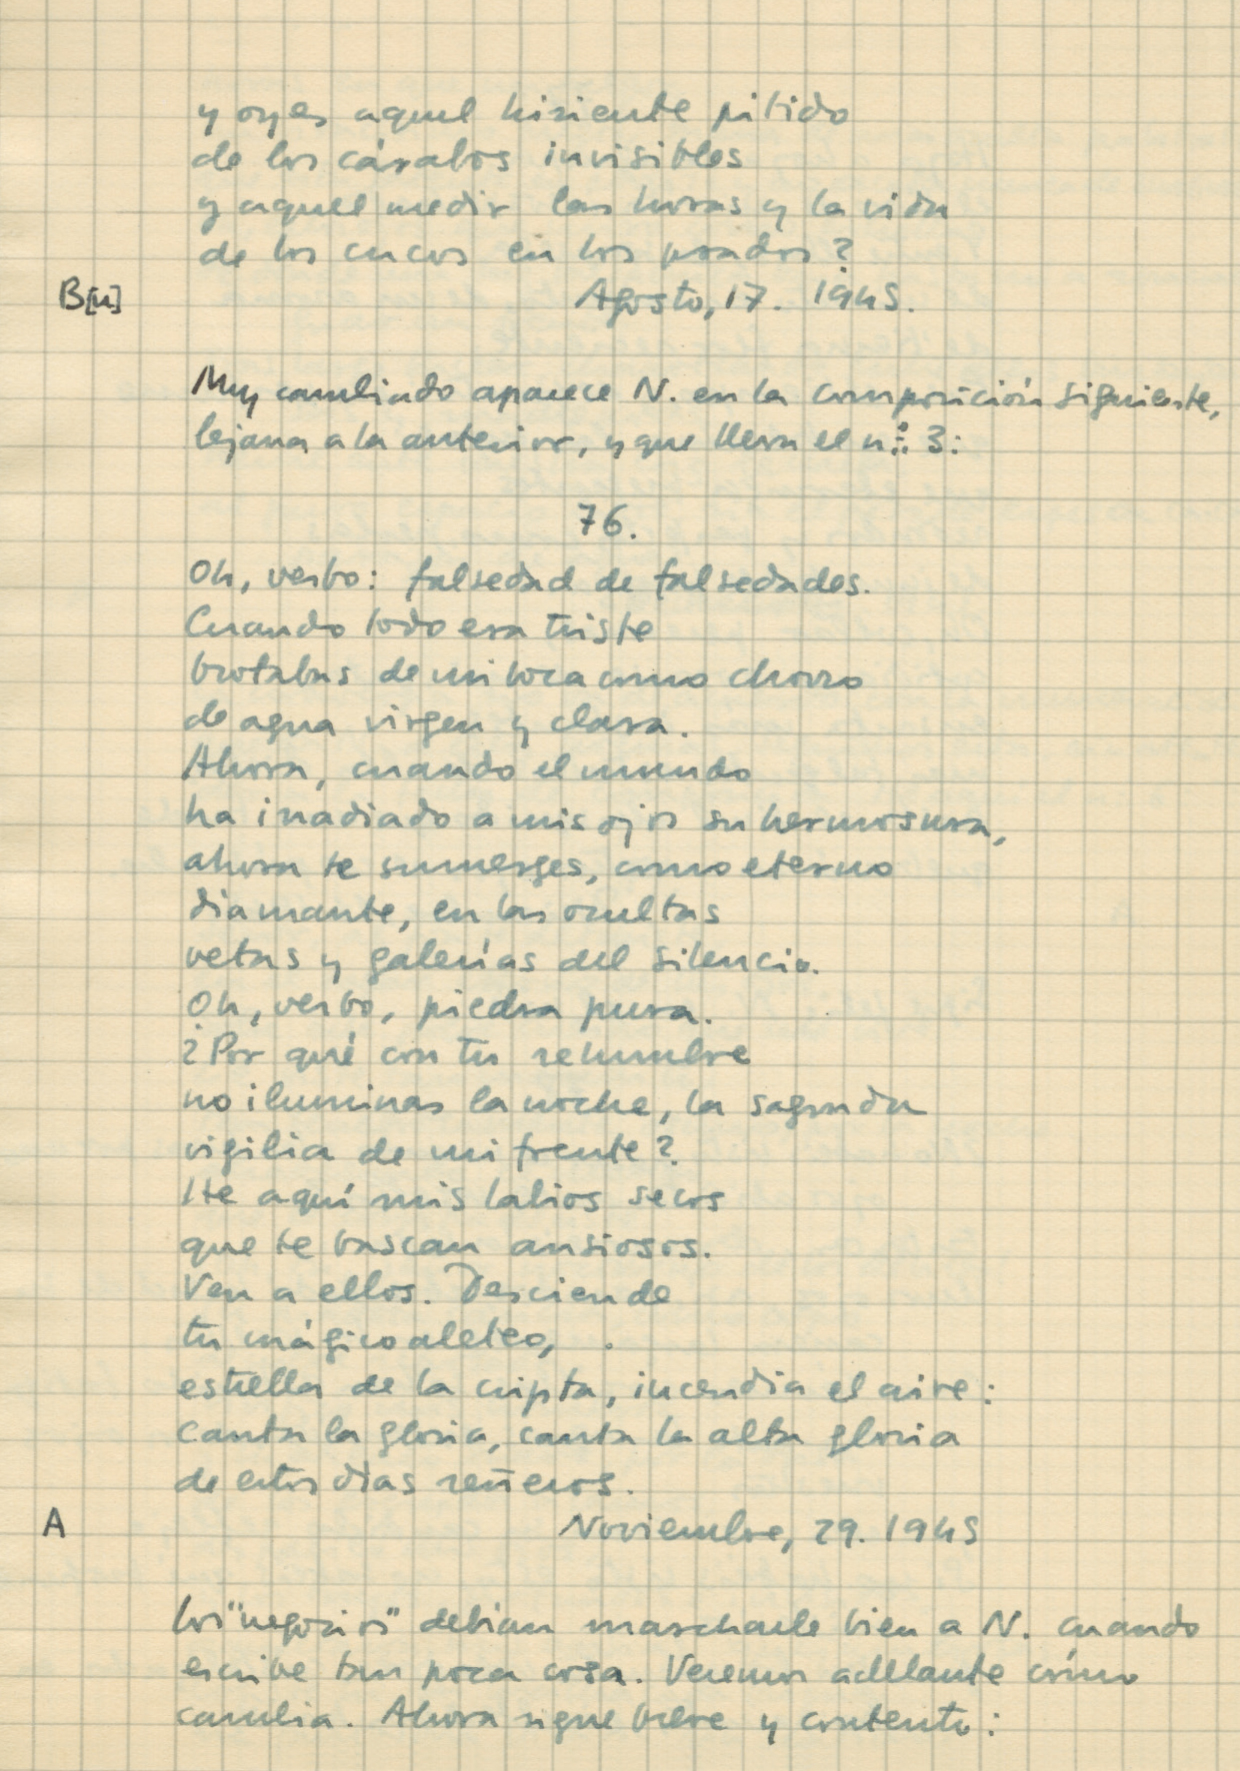 y oyes aquel hiriente pitido
de los cárabos invisibles
y aquel medir las horas y la vida
de los cucos en los prados?
B[u] Agosto, 17. 1945.
Muy cambiado aparece N. en la composición siguiente,
lejana a la anterior, y que lleva el n.º 3:
76.
Oh, verbo: falsedad de falsedades.
Cuando todo era triste
brotabas de mi boca como chorro
de agua virgen y clara.
Ahora, cuando el mundo
ha irradiado a mis ojos su hermosura,
ahora te sumerges, como eterno
diamante, en las ocultas
vetas y galerías del silencio.
Oh, verbo, piedra pura.
¿Por qué con tu relumbre
no iluminas la noche, la sagrada
vigilia de mi frente?
He aquí mis labios secos
que te buscan ansiosos.
Ven a ellos. Desciende
tu mágico aleteo,
estrella de la cripta, incendia el aire:
canta la gloria, canta la alta gloria
de estos días señeros.
A Noviembre, 29. 1945
Los "negocios" debían marcharle bien a N. cuando
escribe tan poca cosa. Veremos adelante cómo
cambia. Ahora sigue breve y contento: